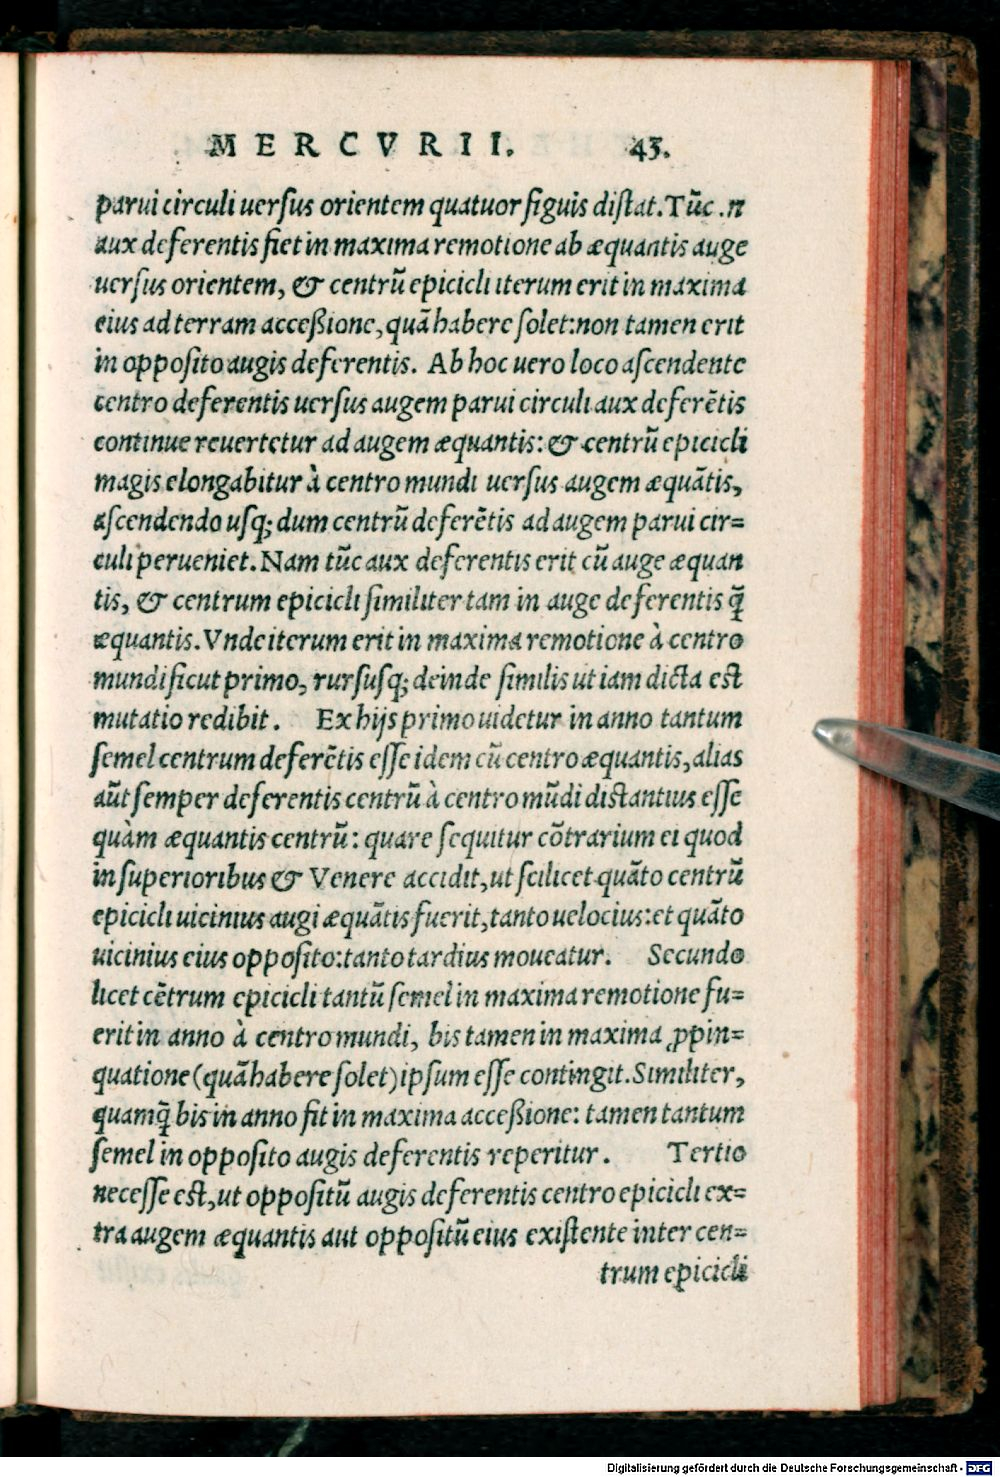 MERCVRII. 43.
parui circuli uersus orientem quatuor figuis distat. Tūc .n
aux deferentis fiet in maxima remotione ab æquantis auge
uersus orientem, & centrū epicicli iterum erit in maxima
eius ad terram acceßione, quā habere solet: non tamen erit
in opposito augis deferentis. Ab hoc uero loco ascendente
centro deferentis uersus augem parui circuli aux deferētis
continue reuertetur ad augem æquantis: & centrū epicicli
magis elongabitur à centro mundi uersus augem æquātis,
ascendendo usq; dum centrū deferētis ad augem parui cir=
culi perueniet. Nam tūc aux deferentis erit cū auge æquan
tis, & centrum epicicli similiter tam in auge deferentis q̄
æquantis. Vnde iterum erit in maxima remotione à centro
mundi sicut primo, rursusq; deinde similis ut iam dicta est
mutatio redibit. Ex hijs primo uidetur in anno tantum
semel centrum deferētis esse idem cū centro æquantis, alias
aūt semper deferentis centrū à centro mūdi distantius esse
quàm æquantis centrū: quare sequitur cōtrarium ei quod
in superioribus & Venere accidit, ut scilicet quāto centrū
epicicli uicinius augi æquātis fuerit, tanto uelocius: et quāto
uicinius eius opposito: tanto tardius moueatur. Secundo
licet cētrum epicicli tantū semel in maxima remotione fu=
erit in anno à centro mundi, bis tamen in maxima ꝓpin=
quatione (quā habere solet) ipsum esse contingit. Similiter,
quamq̄ bis in anno fit in maxima acceßione: tamen tantum
semel in opposito augis deferentis reperitur. Tertio
necesse est, ut oppositū augis deferentis centro epicicli ex=
tra augem æquantis aut oppositū eius existente inter cen=
trum epicicli
Digitalisierung gefördert durch die Deutsche Forschungsgemeinschaft - DFG